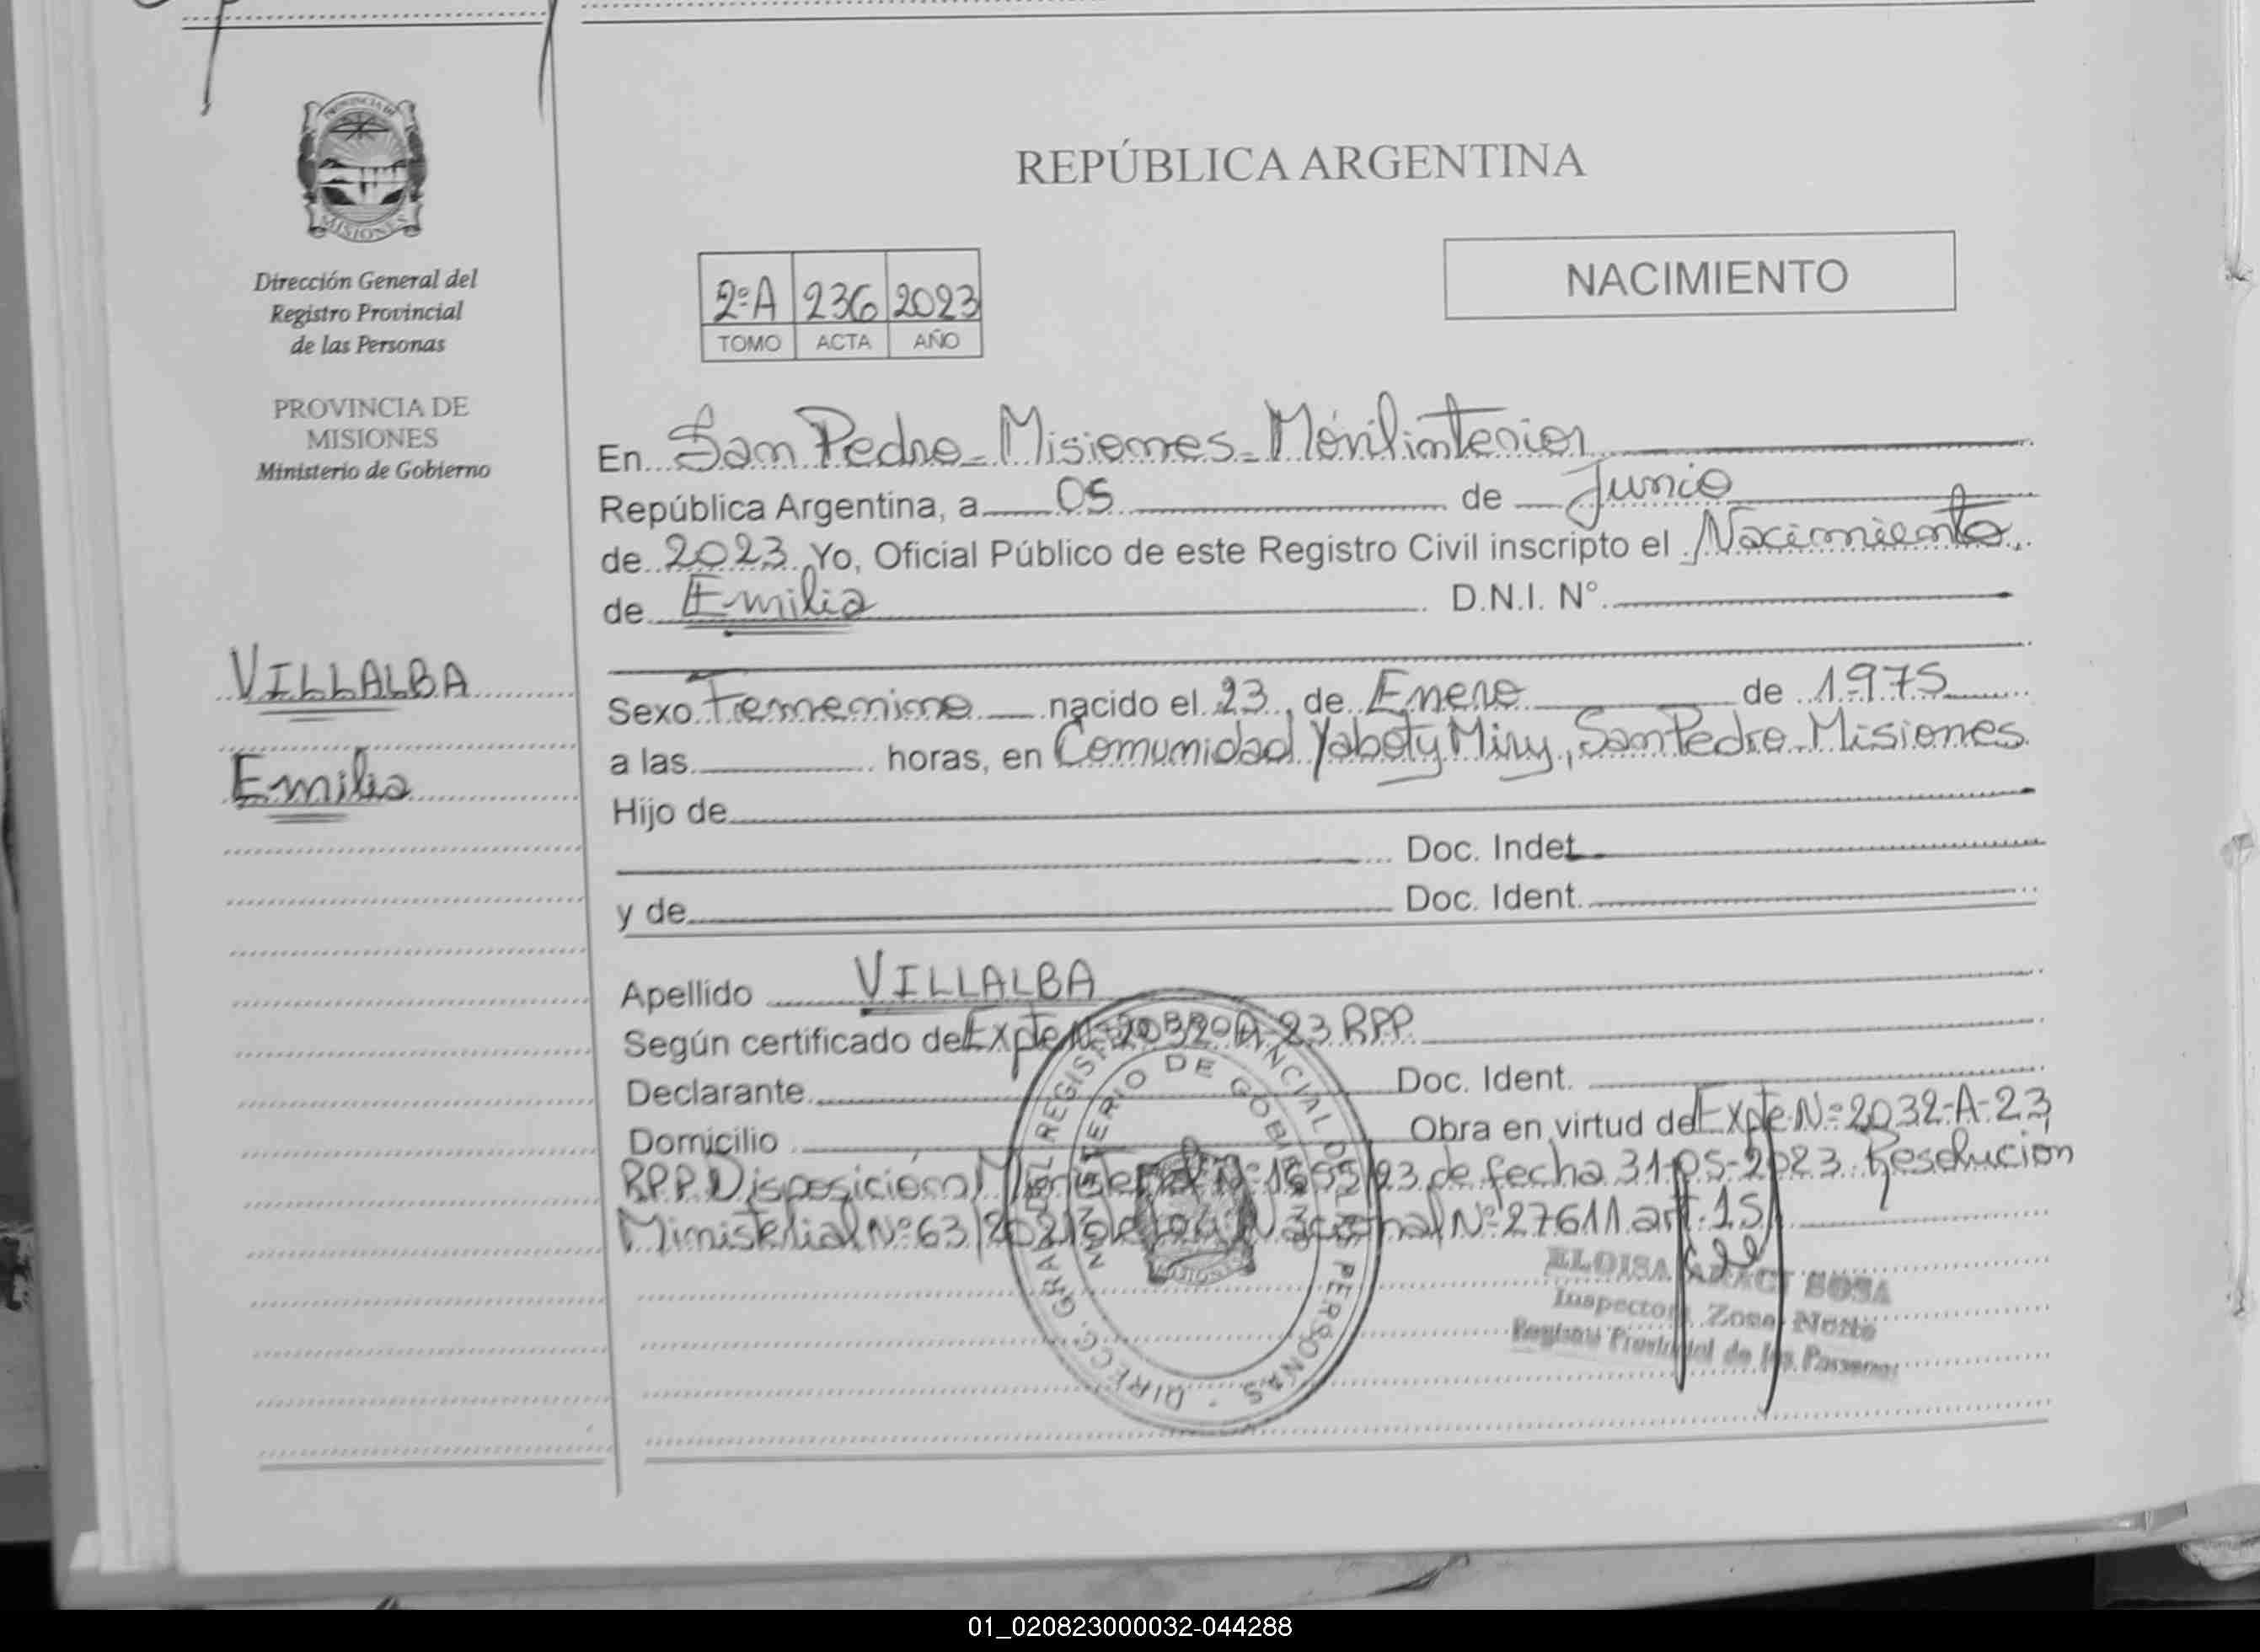 PROVINCIA DE
MISIONES
Dirección General del
Registro Provincial
de las Personas
PROVINCIA DE
MISIONES
Ministerio de Gobierno
VILLALBA
Emilia
REPÚBLICA ARGENTINA
NACIMIENTO
2ºA 236 2023
TOMO ACTA AÑO
En San Pedro - Misiones - Móvil interior
República Argentina, a 05 de Junio
de 2023 Yo, Oficial Público de este Registro Civil inscripto el Nacimiento
de Emilia D.N.I. N°.
Sexo Femenino nacido el 23 de Enero de 1975
a las horas, en Comunidad Yaboty Miny, San Pedro Misiones
Hijo de
Doc. Indet.
y de Doc. Ident.
Apellido VILLALBA
Según certificado de Expte Nº 2032-A-23 RPP.
Declarante Doc. Ident.
Domicilio Obra en virtud de Expte Nº 2032-A-23
RPP. Disposición Ministerial Nº 1655/23 de fecha 31-05-2023. Resolución
Ministerial Nº 63/2021 de Ley Nacional Nº 27611 art. 15
DIRECC. GRAL. DEL REGISTRO PROVINCIAL DE LAS PERSONAS
MINISTERIO DE GOBIERNO
MISIONES
ELOISA ARACI SOSA
Inspectora Zona Norte
Registro Provincial de las Personas
01_020823000032-044288